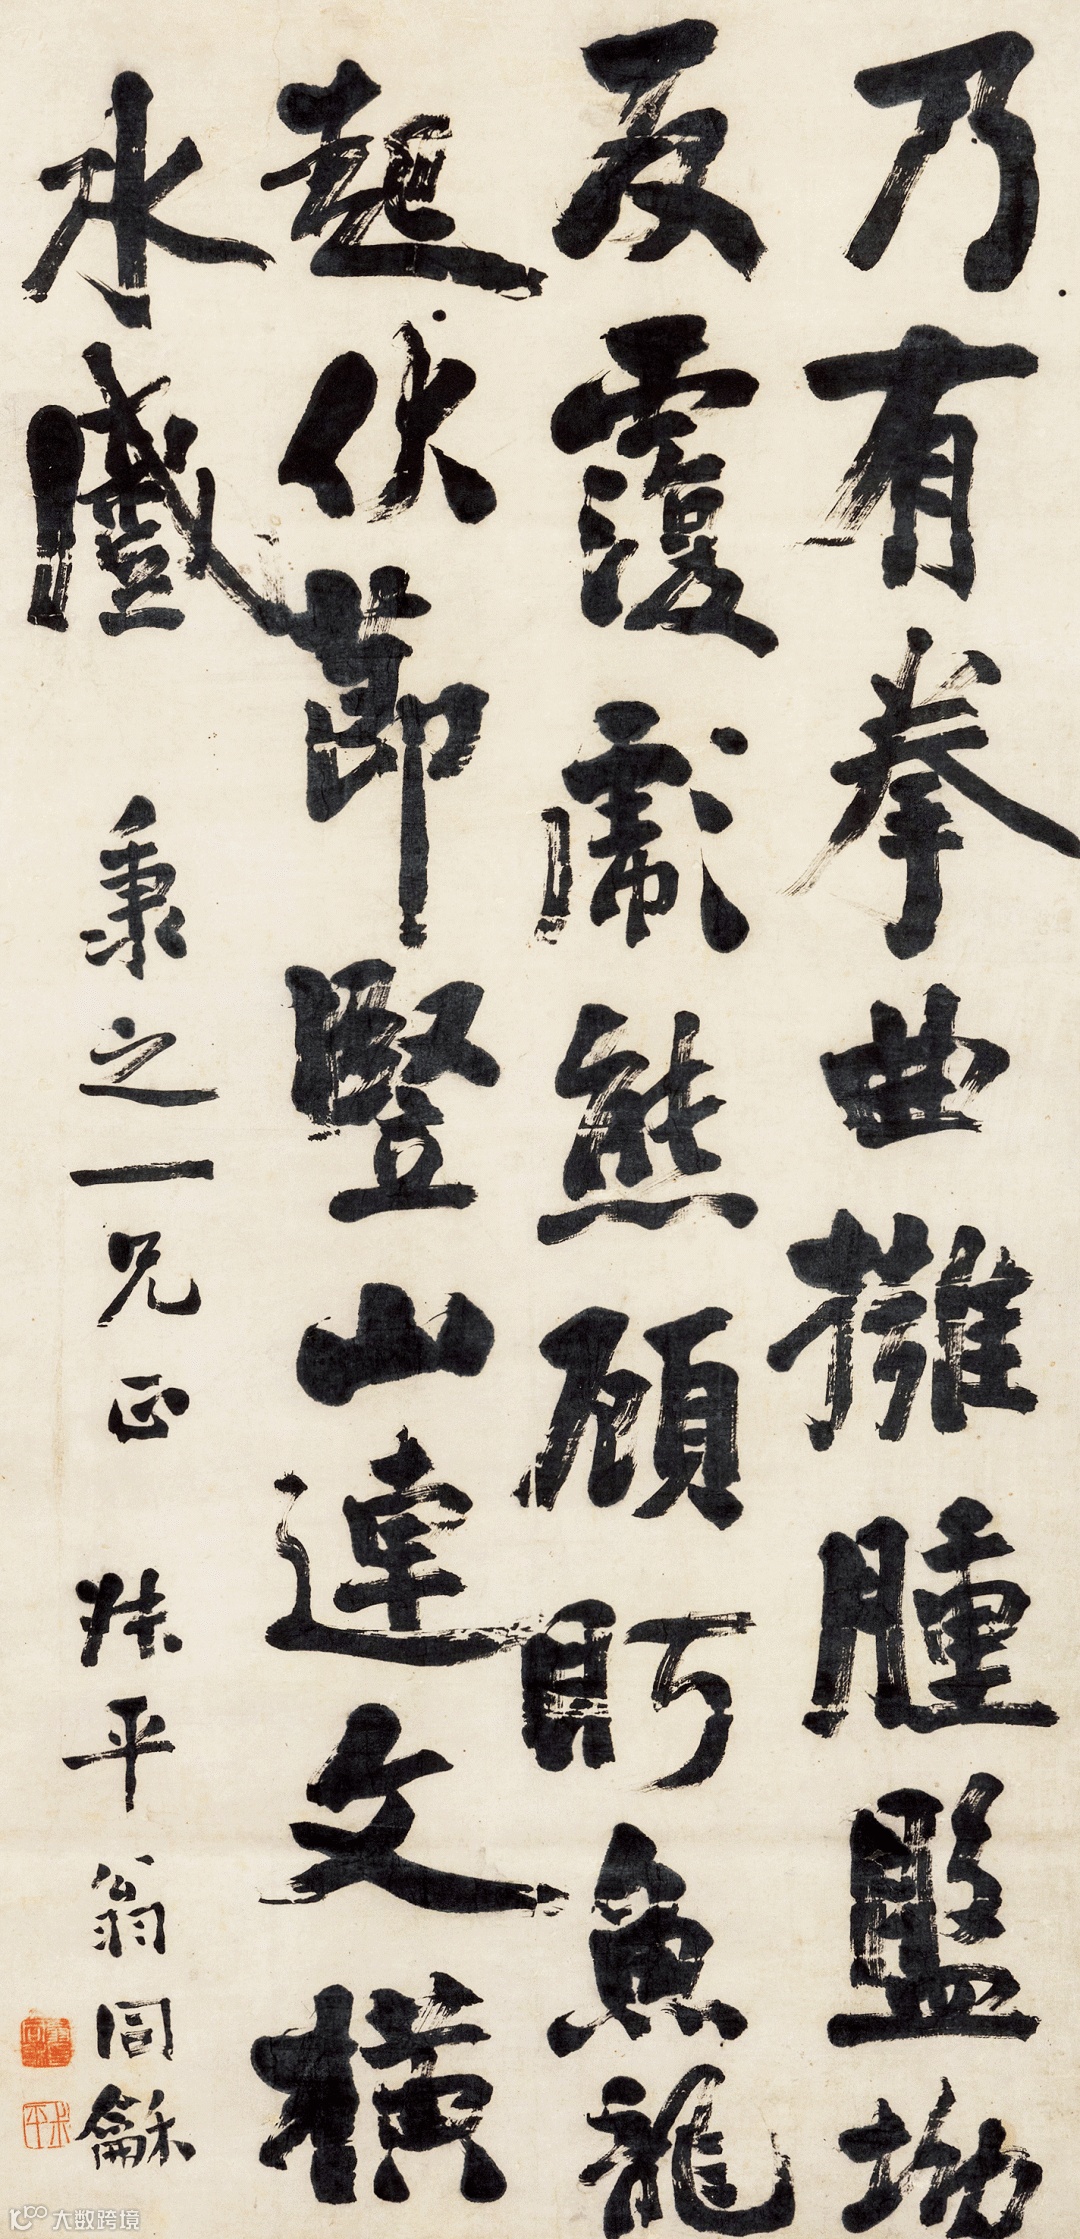 乃有拳曲擁腫盤坳
反覆彪熊顧眄魚龍
起伏節豎山連文橫
水蹙
秉之一兄正
叔平翁同龢
叔平
大数跨境